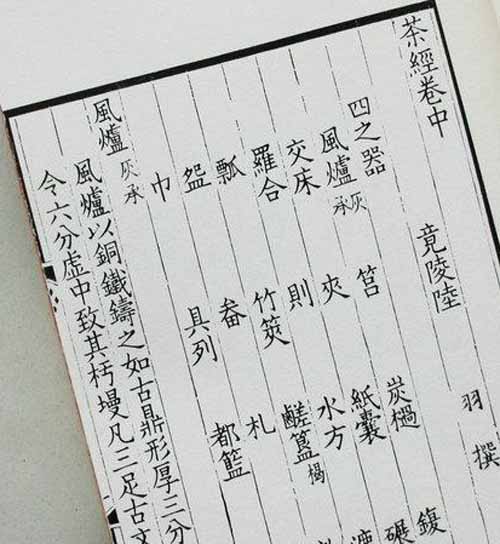 茶經卷中
竟陵陸 羽 撰
四之器
風爐灰承 筥 炭檛 鍑
交床 夾 紙囊 碾
羅合 則 水方 漉
瓢 竹筴 鹺簋揭
盌 畚 札
巾 具列 都籃
風爐灰承
風爐以銅鐵鑄之如古鼎形厚三分
令六分虛中致其杇墁凡三足古文